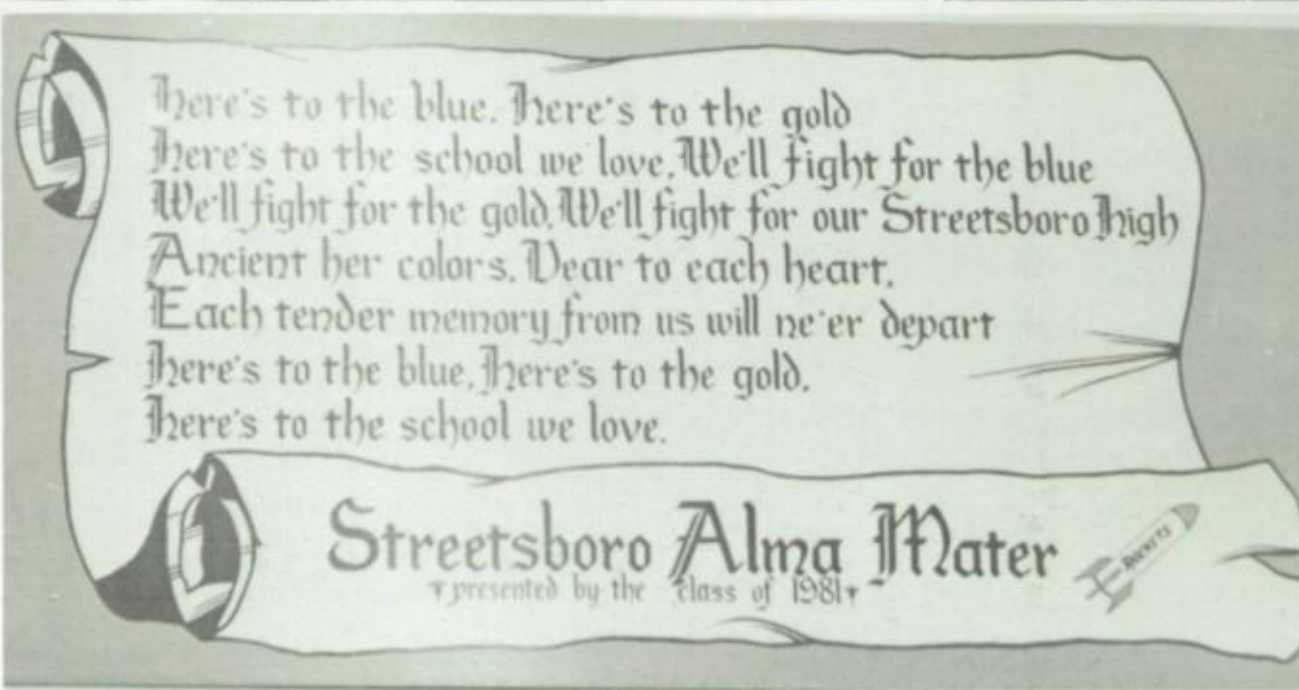 Here's to the blue. Here's to the gold
Here's to the school we love. We'll fight for the blue
We'll fight for the gold. We'll fight for our Streetsboro High
Ancient her colors. Dear to each heart.
Each tender memory from us will ne'er depart
Here's to the blue. Here's to the gold.
Here's to the school we love.
Streetsboro Alma Mater
presented by the class of 1981
ROCKETS